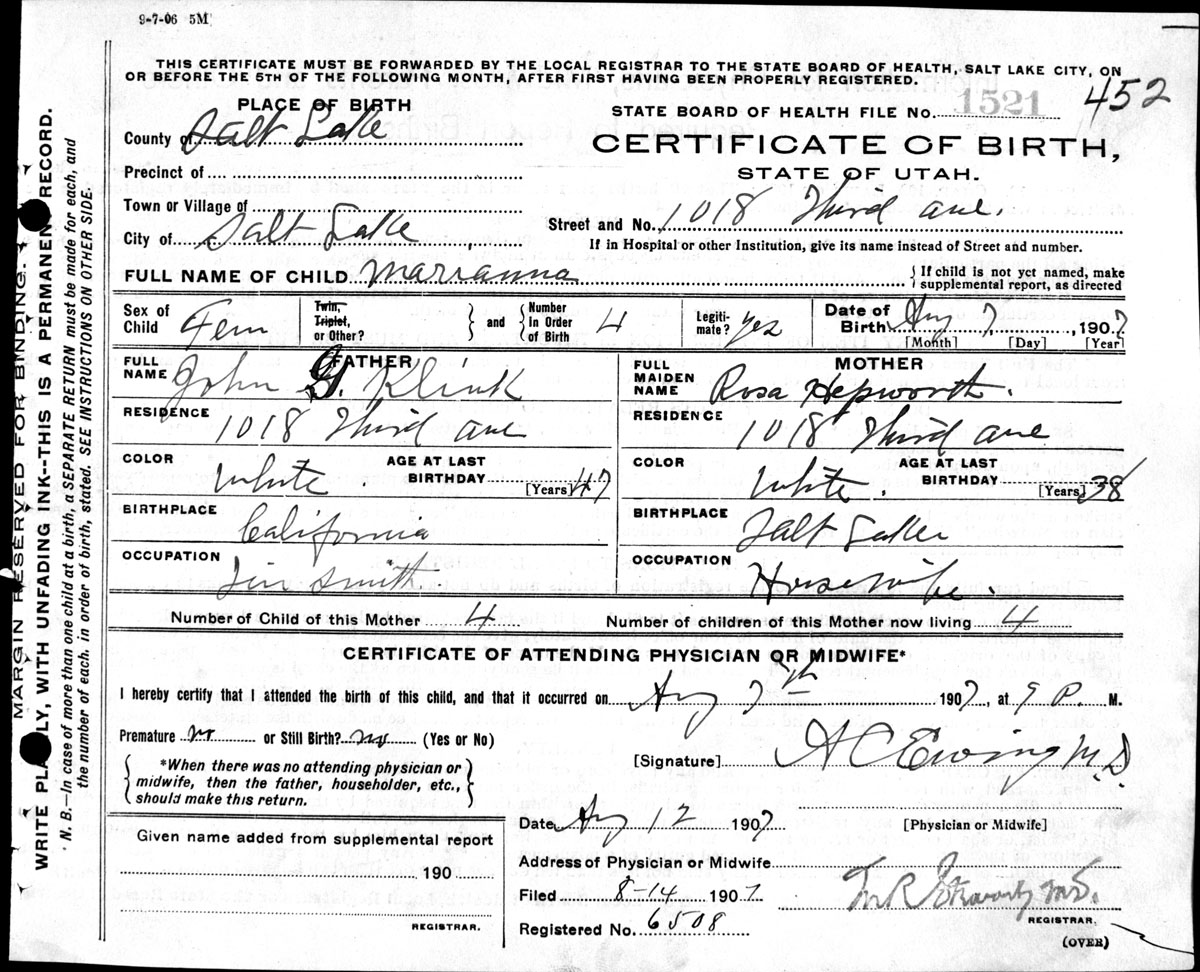 9-7-06 5M
THIS CERTIFICATE MUST BE FORWARDED BY THE LOCAL REGISTRAR TO THE STATE BOARD OF HEALTH, SALT LAKE CITY, ON
OR BEFORE THE 5TH OF THE FOLLOWING MONTH, AFTER FIRST HAVING BEEN PROPERLY REGISTERED.
PLACE OF BIRTH
County of Salt Lake
Precinct of
Town or Village of
City of Salt Lake
STATE BOARD OF HEALTH FILE No. 1521 452
CERTIFICATE OF BIRTH,
STATE OF UTAH.
Street and No. 1018 Third ave.
If in Hospital or other Institution, give its name instead of Street and number.
FULL NAME OF CHILD Marranna
{If child is not yet named, make
supplemental report, as directed
Sex of Child Fem
Twin, Triplet, or Other? } and { Number in Order of Birth 4
Legitimate? yes
Date of Birth Aug 7, 1907
[Month] [Day] [Year]
FATHER
FULL NAME John G. Klink
RESIDENCE 1018 Third ave
COLOR White AGE AT LAST BIRTHDAY 47 [Years]
BIRTHPLACE California
OCCUPATION Tin Smith
MOTHER
FULL MAIDEN NAME Rosa Hepworth.
RESIDENCE 1018 Third ave
COLOR White. AGE AT LAST BIRTHDAY 38 [Years]
BIRTHPLACE Salt Lake
OCCUPATION Housewife.
Number of Child of this Mother 4
Number of children of this Mother now living 4
CERTIFICATE OF ATTENDING PHYSICIAN OR MIDWIFE*
I hereby certify that I attended the birth of this child, and that it occurred on Aug 7th 1907, at 9 P. M.
Premature no or Still Birth? no (Yes or No)
*When there was no attending physician or
midwife, then the father, householder, etc.,
should make this return.
[Signature] A C Ewing M.D
Date Aug 12 1907 [Physician or Midwife]
Given name added from supplemental report
190
REGISTRAR.
Address of Physician or Midwife
Filed 8-14 1907
Registered No. 6508
REGISTRAR.
(OVER)
MARGIN RESERVED FOR BINDING.
WRITE PLAINLY, WITH UNFADING INK--THIS IS A PERMANENT RECORD.
N. B.—In case of more than one child at a birth, a SEPARATE RETURN must be made for each, and
the number of each. in order of birth, stated. SEE INSTRUCTIONS ON OTHER SIDE.